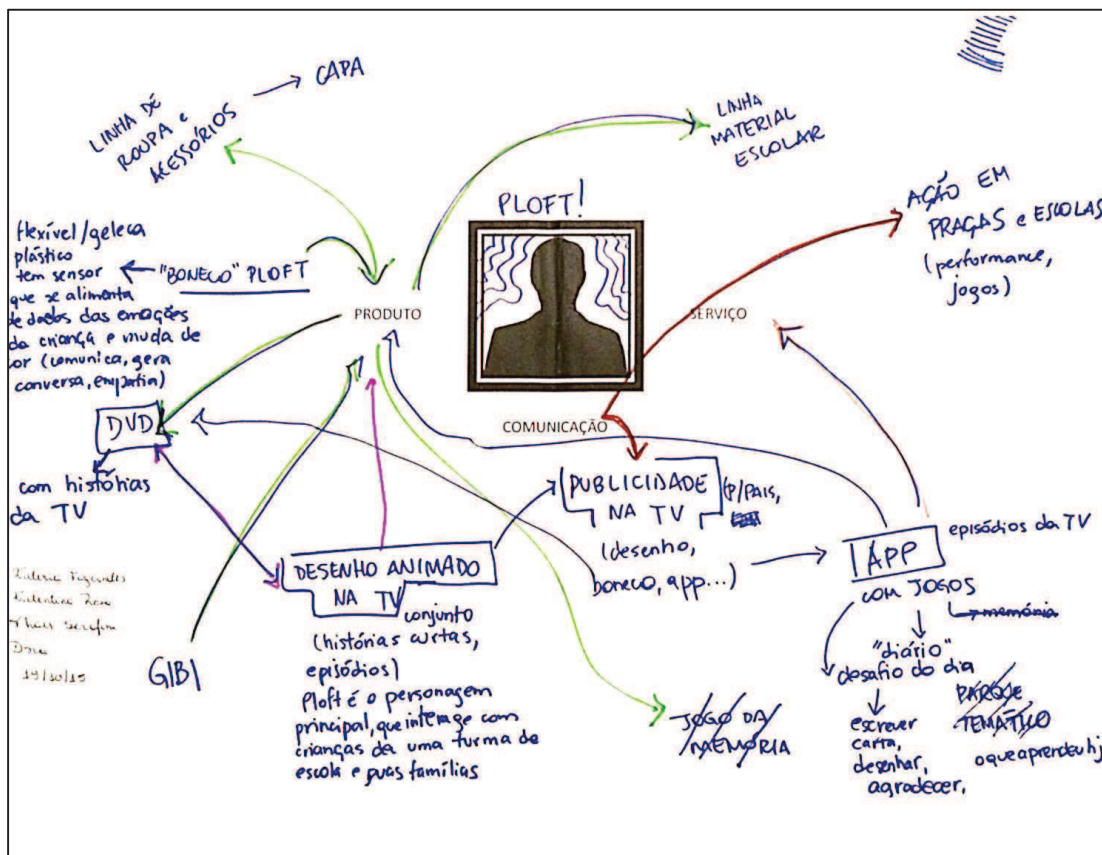 LINHA DE
ROUPA e
ACESSÓRIOS
CAPA
LINHA
MATERIAL
ESCOLAR
PLOFT!
AÇÃO EM
PRAÇAS e ESCOLAS
(performance,
jogos)
flexível/geleca
plástico
tem sensor
que se alimenta
de dados das emoções
da criança e muda de
cor (comunica, gera
conversa, empatia)
"BONECO" PLOFT
PRODUTO
SERVIÇO
COMUNICAÇÃO
DVD
com histórias
da TV
PUBLICIDADE
NA TV
(p/PAIS,
(desenho,
boneco, app...)
APP
episódios da TV
COM JOGOS
memória
"diário"
desafio do dia
escrever
carta,
desenhar,
agradecer,
PARQUE
TEMÁTICO
o que aprendeu hj
DESENHO ANIMADO
NA TV
conjunto
(histórias curtas,
episódios)
Ploft é o personagem
principal, que interage com
crianças da uma turma de
escola e suas famílias
GIBI
JOGO DA
MEMÓRIA
19/10/15